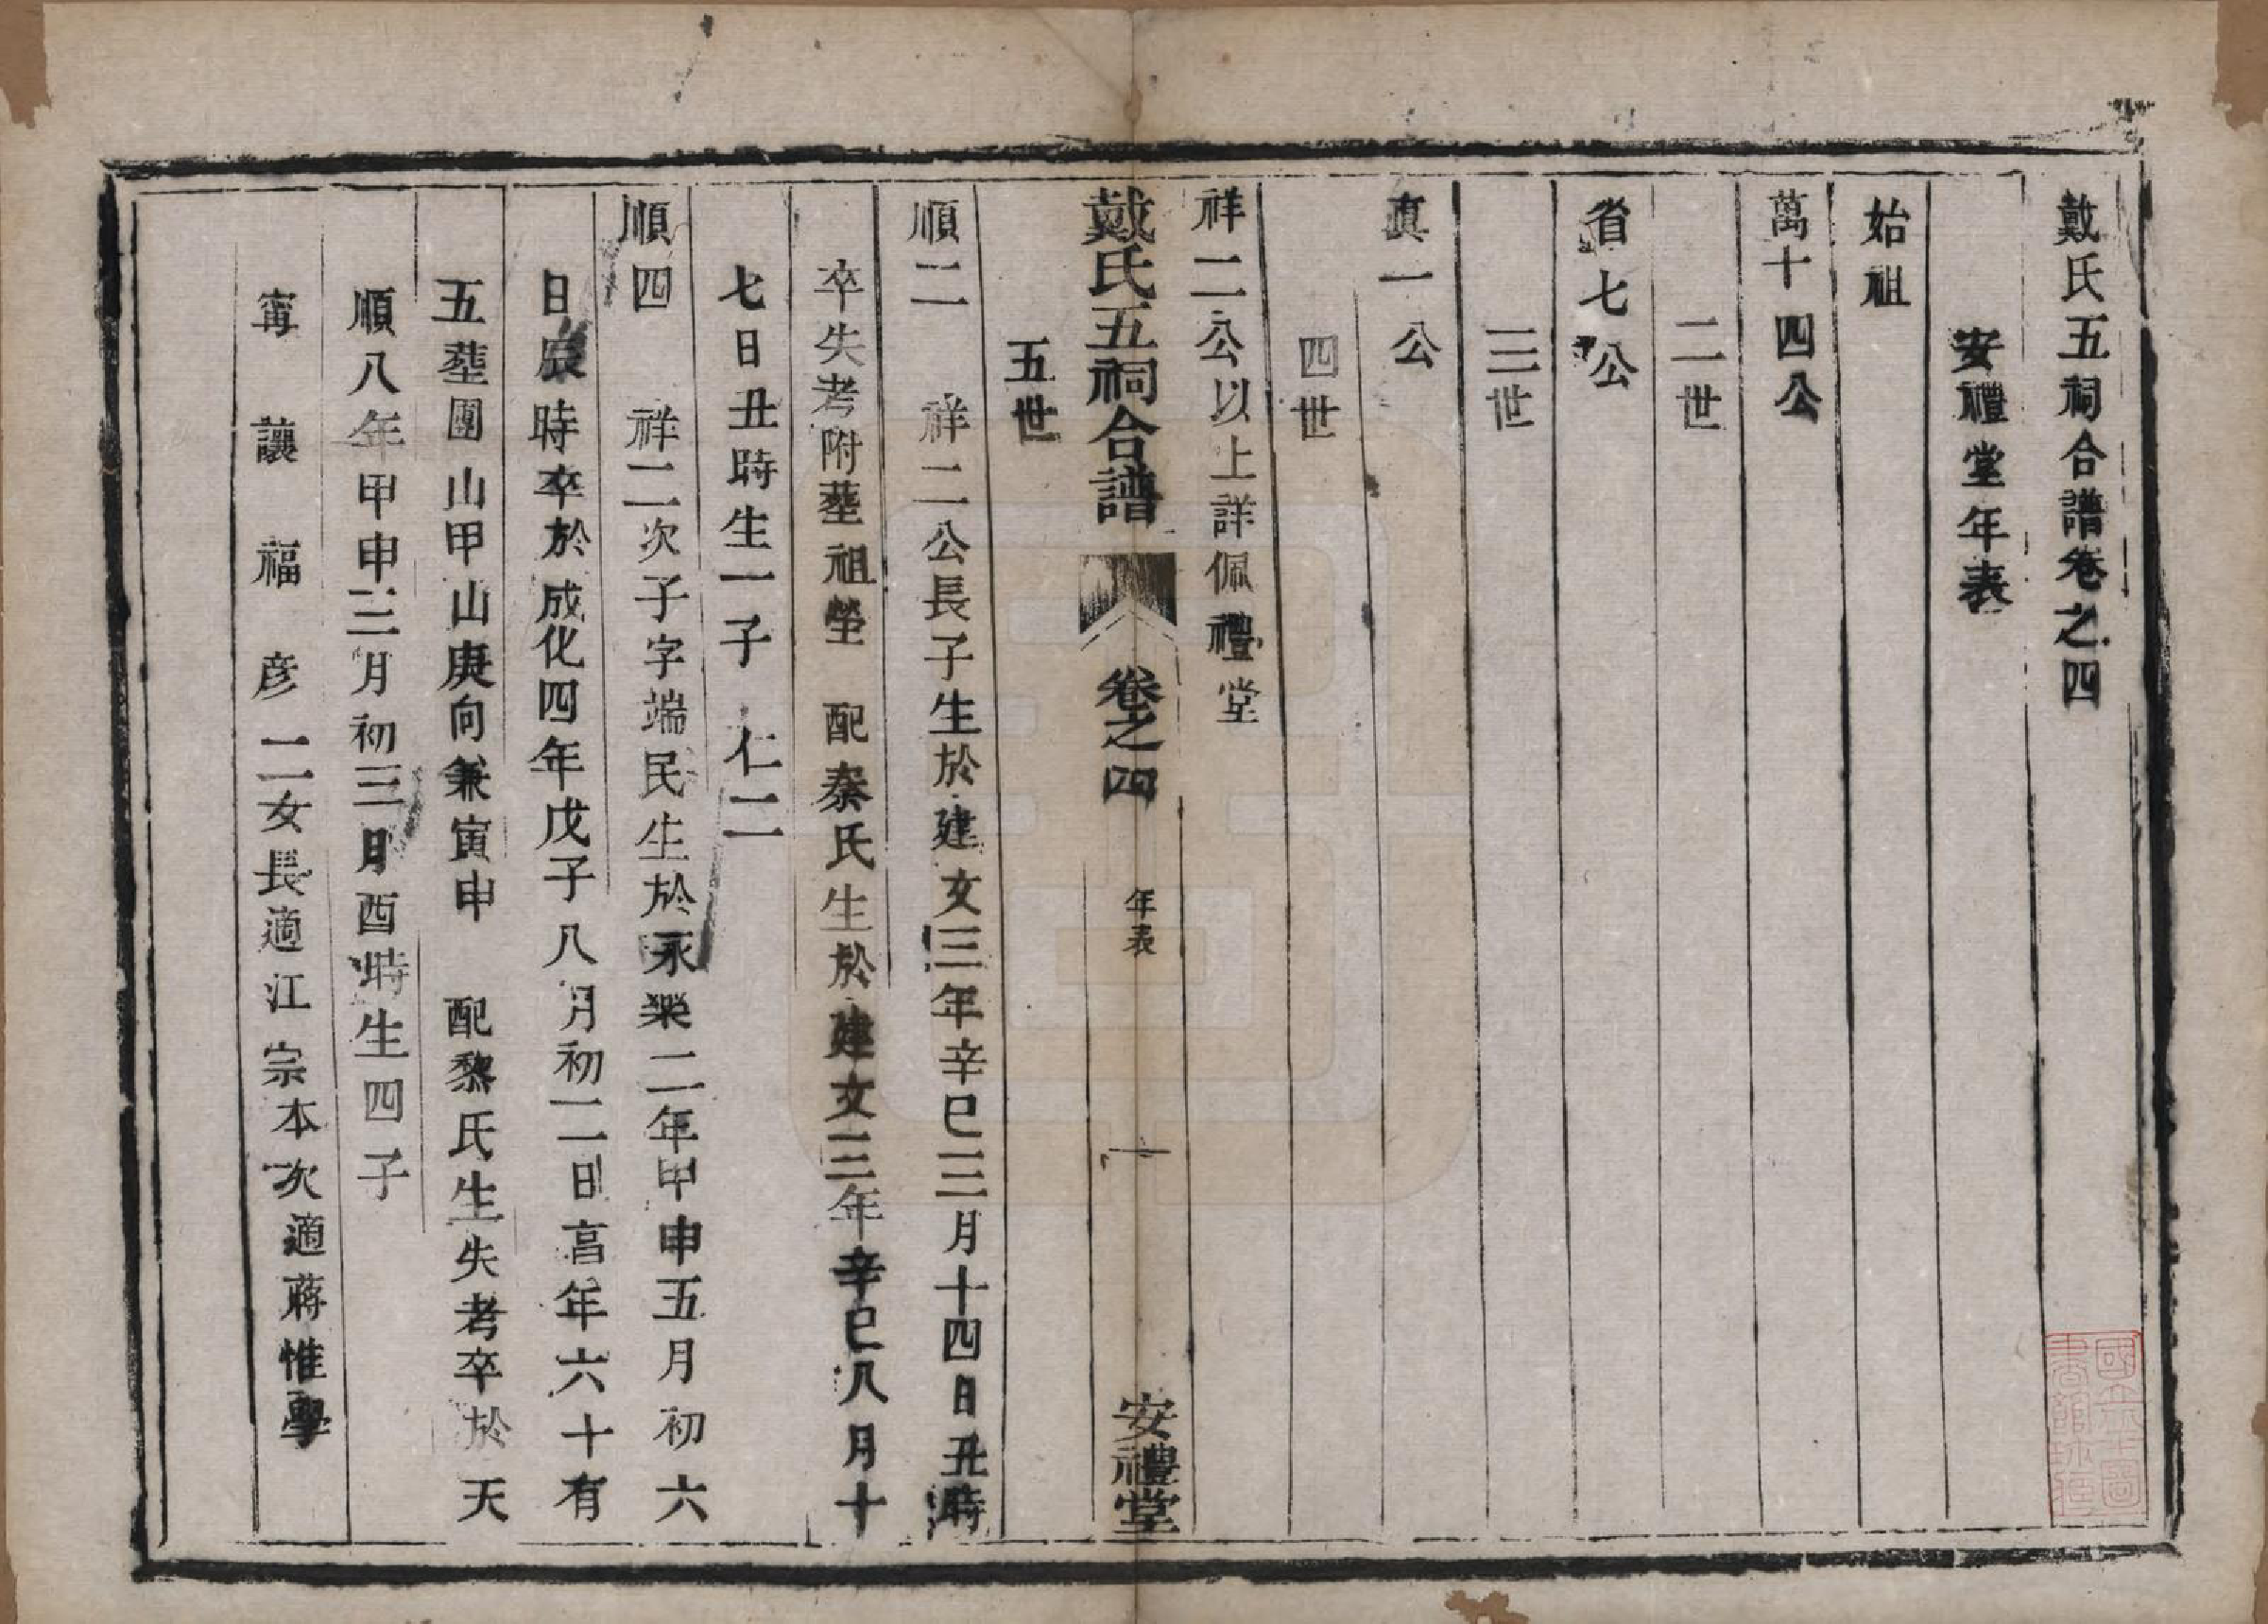 戴氏五祠合譜卷之四
安禮堂年表
始祖
萬十四公
二世
省七公
三世
真一公
四世
祥二公以上詳佩禮堂
戴氏五祠合譜 卷之四 年表 一 安禮堂
五世
順二 祥二公長子生於建文三年辛巳三月十四日丑時
卒失考附塟祖塋 配秦氏生於建文三年辛巳八月十
七日丑時生一子 仁二
順四 祥二次子字端民生於永樂二年甲申五月初六
日辰時卒於成化四年戊子八月初二日亯年六十有
五塟團山甲山庚向兼寅申 配黎氏生失考卒於天
順八年甲申三月初三日酉時生四子
寗 讓 福 彦 二女長適江宗本次適蔣惟學
國立北平圖書館珍藏